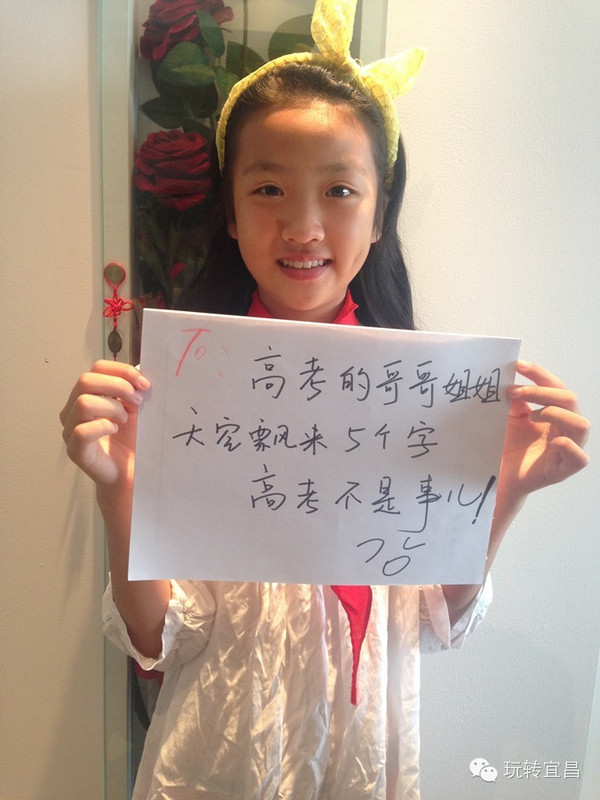 To:
高考的哥哥姐姐
天空飘来5个字
高考不是事儿!
玩转宜昌